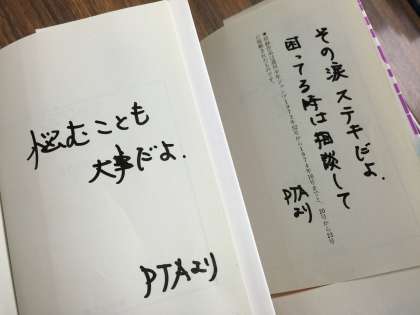 悩むことも
大事だよ.
PTAより
その涙ステキだよ.
困ってる時は相談して
PTA
より